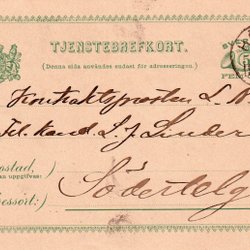 TJENSTEBREFKORT.
(Denna sida användes endast för adresseringen.)
FEM
Kontraktsprosten L.
Fil. kand. L. J. Linder
ostad,
an uppgifvas:
Södertelg
ressort:)